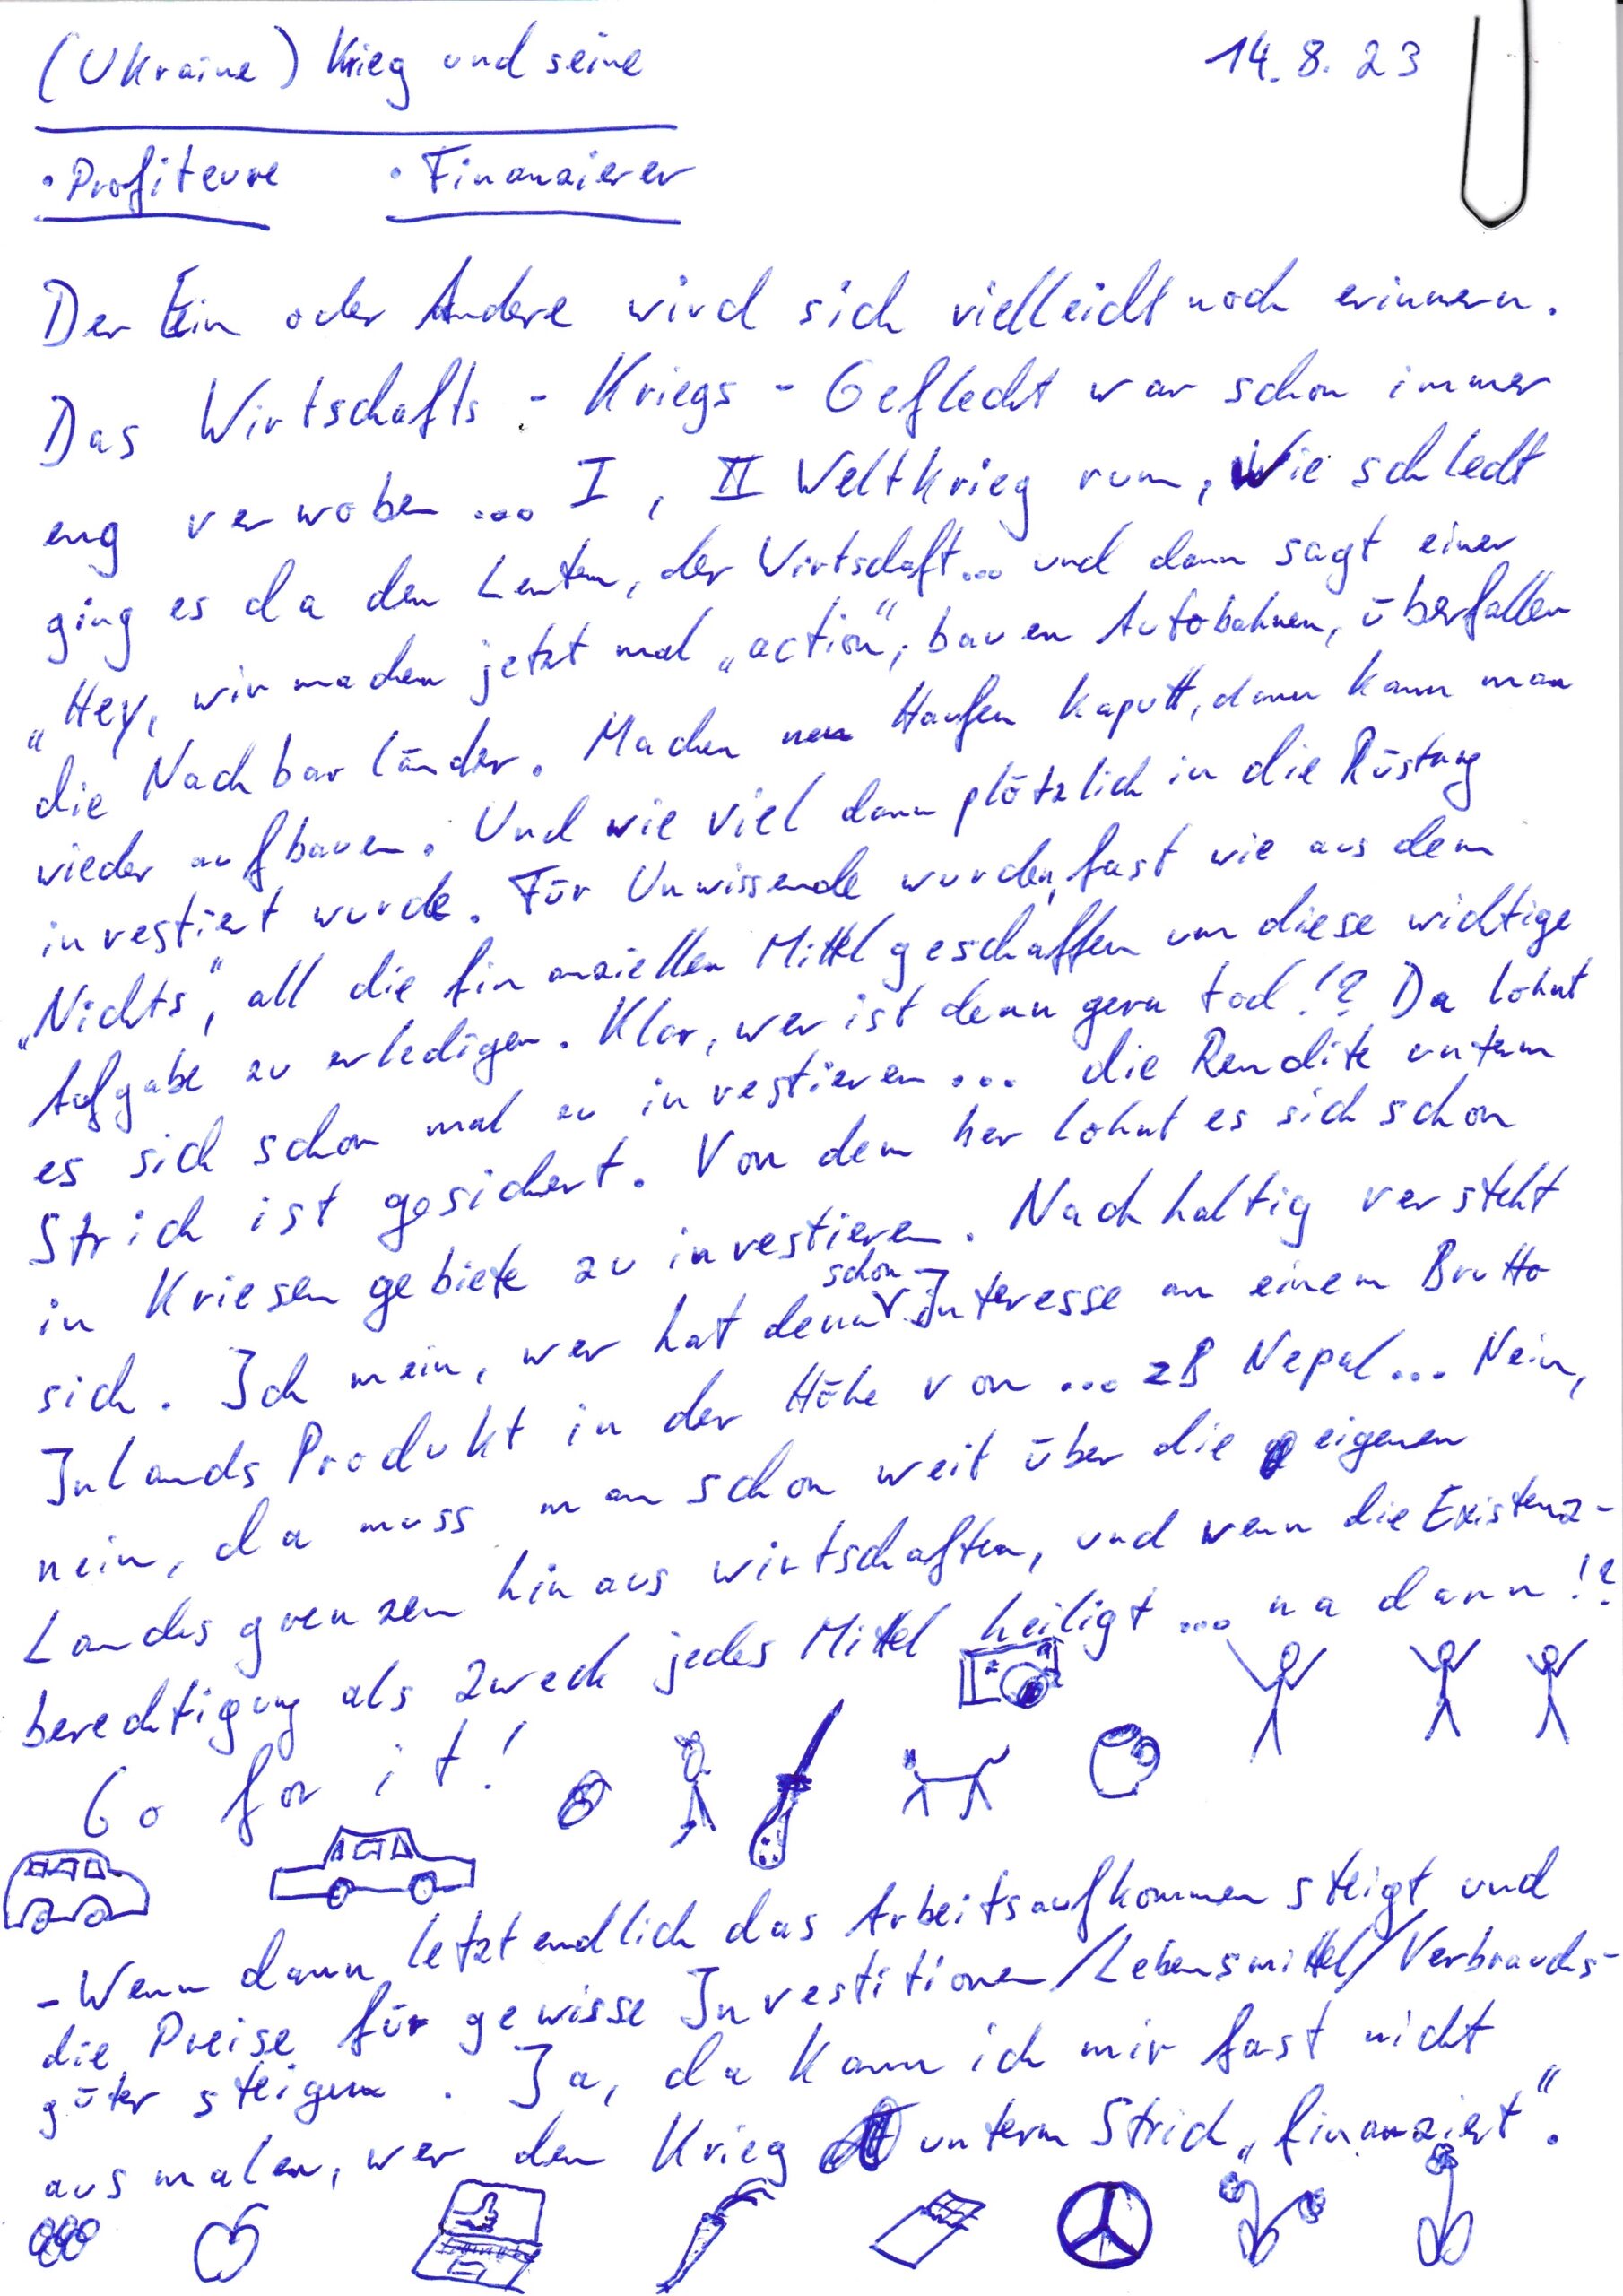 (Ukraine) Krieg und seine
14.8.23
· Profiteure · Finanzierer
Der Ein oder Andere wird sich vielleicht noch erinnern.
Das Wirtschafts - Kriegs - Geflecht war schon immer
eng verwoben ... I, II Weltkrieg rum, Wie schlecht
ging es da den Leuten, der Wirtschaft... und dann sagt einer
„Hey, wir machen jetzt mal „action“, bauen Autobahnen, überfallen
die Nachbarländer. Machen nen Haufen kaputt, dann kann man
wieder aufbauen. Und wie viel dann plötzlich in die Rüstung
investiert wurde. Für Unwissende wurden, fast wie aus dem
„Nichts“, all die finanziellen Mittel geschaffen um diese wichtige
Aufgabe zu erledigen. Klar, wer ist denn gern tod!? Da lohnt
es sich schon mal zu investieren... die Rendite unterm
Strich ist gesichert. Von dem her lohnt es sich schon
in Kriesengebiete zu investieren. Nachhaltig versteht
sich. Ich mein, wer hat denn schon Interesse an einem Brutto
Inlands Produkt in der Höhe von ... zB Nepal... Nein,
nein, da muss man schon weit über die eigenen
Landesgrenzen hinaus wirtschaften, und wenn die Existenz-
berechtigung als Zweck jedes Mittel heiligt ... na dann!?
Go for it!
- Wenn dann letztendlich das Arbeitsaufkommen steigt und
die Preise für gewisse Investitionen/Lebensmittel/Verbrauchs-
güter steigen. Ja, da kann ich mir fast nicht
ausmalen, wer den Krieg unterm Strich „finanziert“.